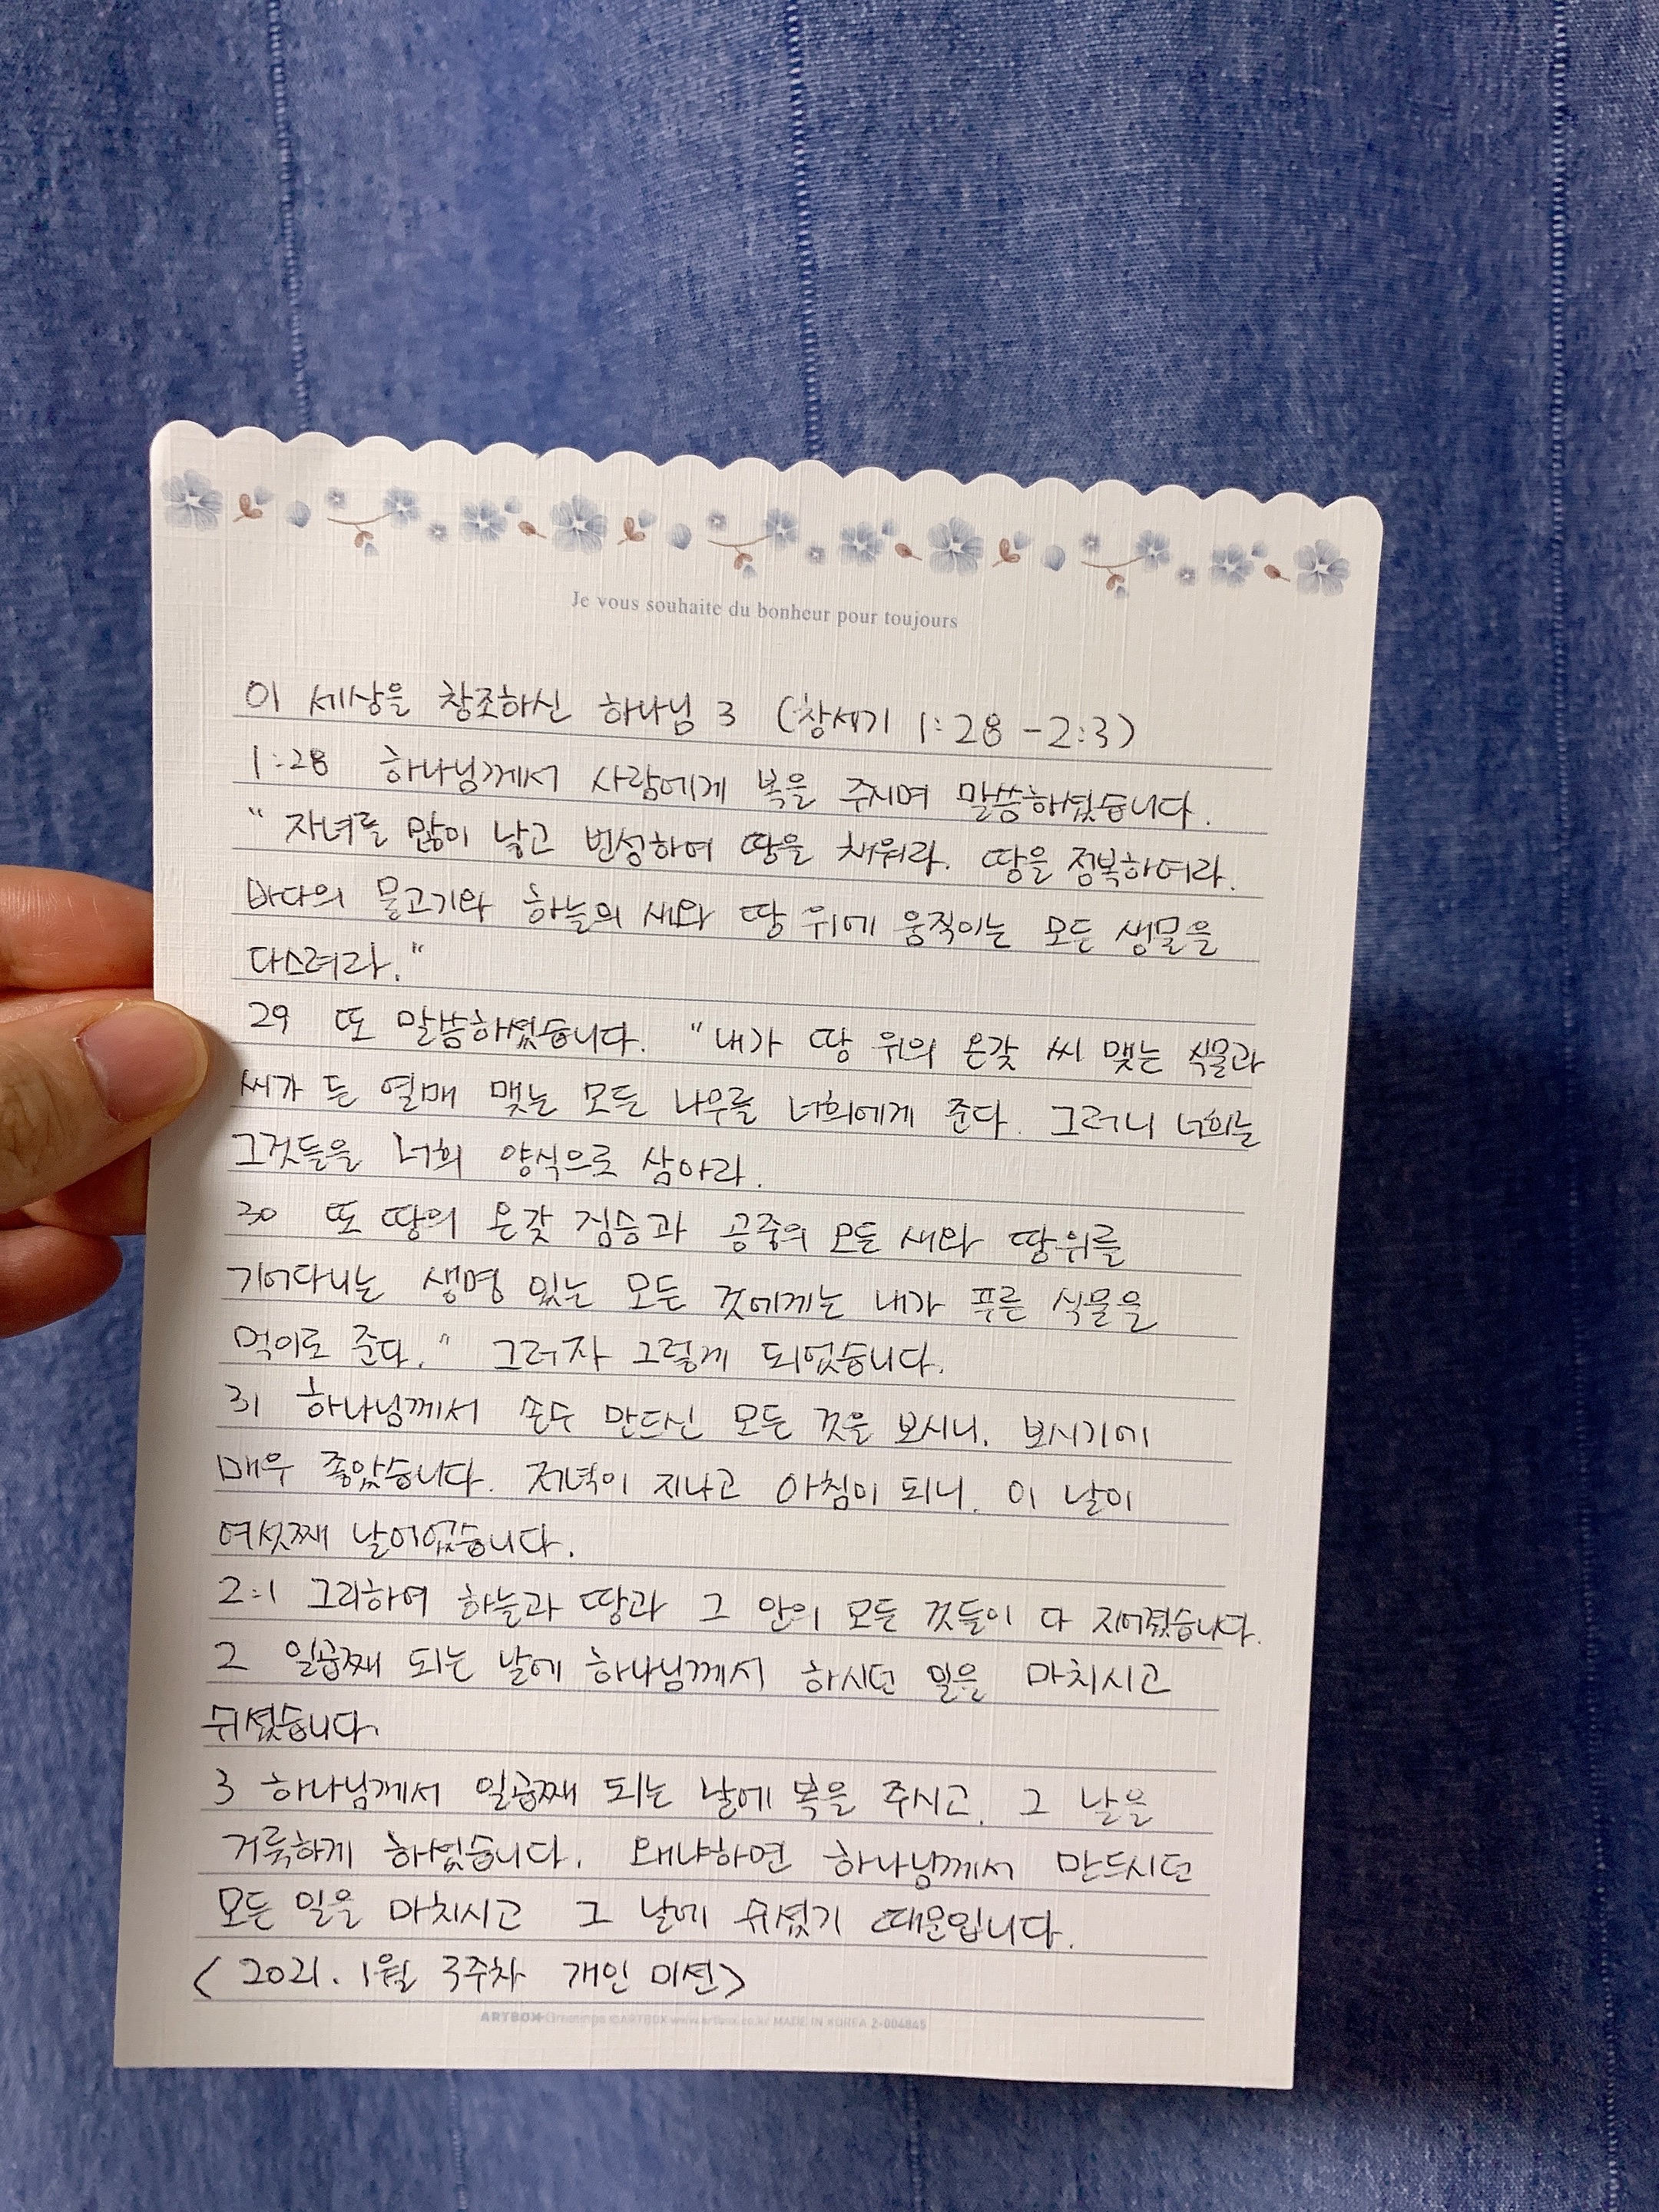 Je vous souhaite du bonheur pour toujours
이 세상을 창조하신 하나님 3 (창세기 1:28 -2:3)
1:28 하나님께서 사람에게 복을 주시며 말씀하셨습니다.
"자녀를 많이 낳고 번성하여 땅을 채워라. 땅을 정복하여라.
바다의 물고기와 하늘의 새와 땅 위에 움직이는 모든 생물을
다스려라."
29 또 말씀하셨습니다. "내가 땅 위의 온갖 씨 맺는 식물과
씨가 든 열매 맺는 모든 나무를 너희에게 준다. 그러니 너희는
그것들을 너희 양식으로 삼아라.
30 또 땅의 온갖 짐승과 공중의 모든 새와 땅위를
기어다니는 생명 있는 모든 것에게는 내가 푸른 식물을
먹이로 준다." 그러자 그렇게 되었습니다.
31 하나님께서 손수 만드신 모든 것을 보시니, 보시기에
매우 좋았습니다. 저녁이 지나고 아침이 되니, 이 날이
여섯째 날이었습니다.
2:1 그리하여 하늘과 땅과 그 안의 모든 것들이 다 지어졌습니다.
2 일곱째 되는 날에 하나님께서 하시던 일을 마치시고
쉬셨습니다.
3 하나님께서 일곱째 되는 날에 복을 주시고, 그 날을
거룩하게 하셨습니다. 왜냐하면 하나님께서 만드시던
모든 일을 마치시고 그 날에 쉬셨기 때문입니다.
< 2021. 1월 3주차 개인 미션>
ARTBOX Greetings ©ARTBOX www.artbox.co.kr MADE IN KOREA 2-004845